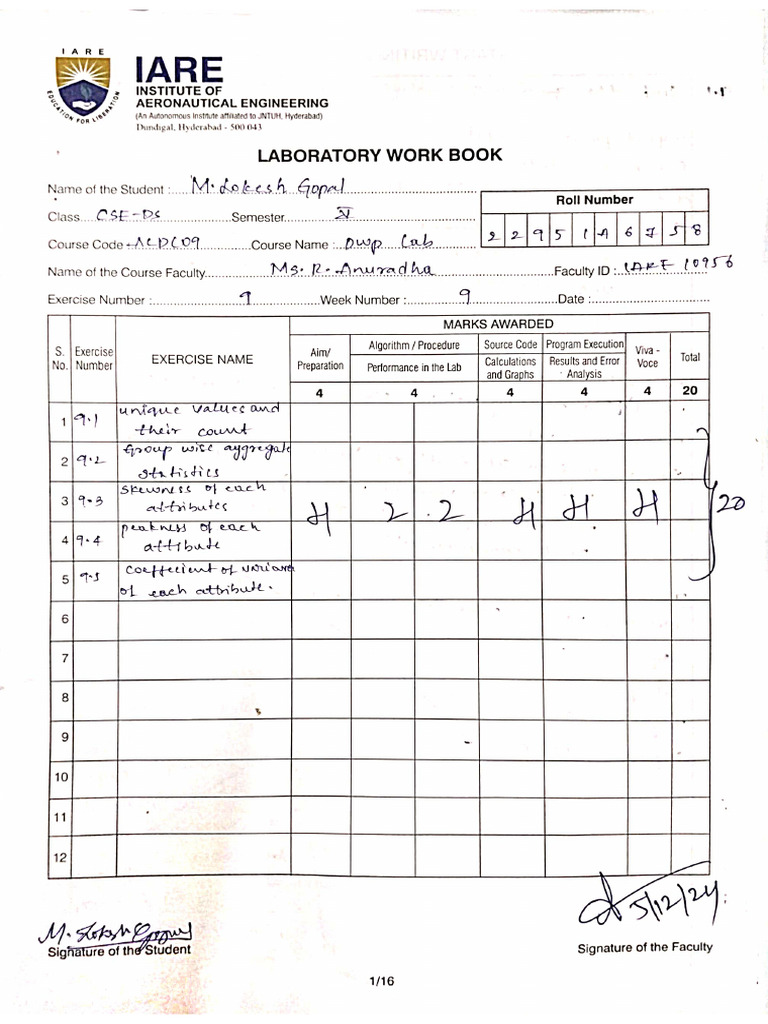 I A R E
EDUCATION FOR LIBERATION
IARE
INSTITUTE OF
AERONAUTICAL ENGINEERING
(An Autonomous Institute affiliated to JNTUH, Hyderabad)
Dundigal, Hyderabad - 500 043
LABORATORY WORK BOOK
Name of the Student : M. Lokesh Gopal
Roll Number
Class CSE-DS Semester
Course Code - ACDC09 Course Name : DWP Lab
2 2 9 5 1 A 6 7 5 8
Name of the Course Faculty Ms. R. Anuradha Faculty ID : IARE 10956
Exercise Number : 9 Week Number : 9 Date :
S. No. Exercise Number EXERCISE NAME MARKS AWARDED
Aim/ Preparation Algorithm / Procedure Source Code Program Execution Viva - Voce Total
Performance in the Lab Calculations and Graphs Results and Error Analysis
4 4 4 4 4 20
1 9.1 unique values and
their count
2 9.2 Group wise aggregate
statistics
3 9.3 skewness of each
attributes
4 2 2 4 4 4 20
4 9.4 peakness of each
attibute
5 9.5 coefficient of
of each attribute.
6
7
8
9
10
11
12
5/12/24
M. Lokesh Gopal
Signature of the Student Signature of the Faculty
1/16